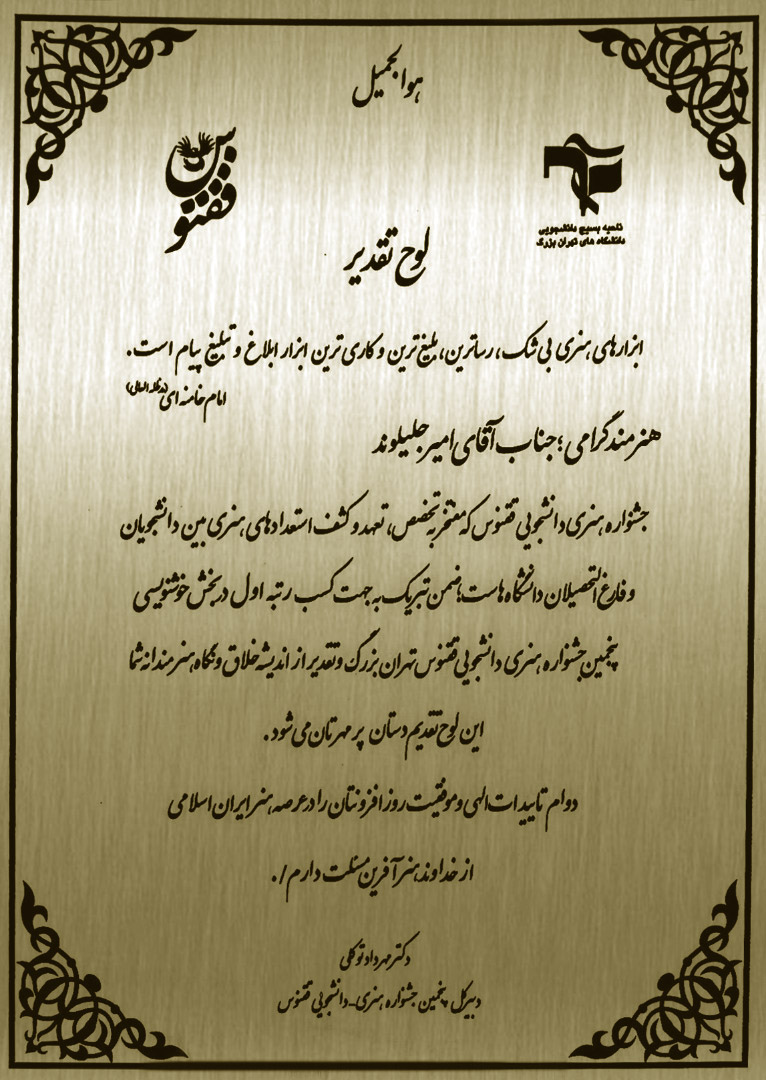 هوالجمیل
ققنوس
ناحیه بسیج دانشجویی
دانشگاه های تهران بزرگ
لوح تقدیر
ابزارهای هنری بی شک، رساترین، بلیغ ترین و کاری ترین ابزار ابلاغ و تبلیغ پیام است.
امام خامنه ای (مدظله العالی)
هنرمند گرامی ؛ جناب آقای امیر جلیلوند
جشنواره هنری دانشجویی ققنوس که مفتخر به تخصص، تعهد و کشف استعدادهای هنری بین دانشجویان
و فارغ التحصیلان دانشگاه هاست، ضمن تبریک به جهت کسب رتبه اول در بخش خوشنویسی
پنجمین جشنواره هنری دانشجویی ققنوس تهران بزرگ و تقدیر از اندیشه خلاق و نگاه هنرمندانه شما
این لوح تقدیم دستان پر مهرتان می شود.
دوام تاییدات الهی و موفقیت روز افزونتان را در عرصه هنر ایران اسلامی
از خداوند هنر آفرین مسئلت دارم./
دکتر مهرداد توکلی
دبیر کل پنجمین جشنواره هنری-دانشجویی ققنوس